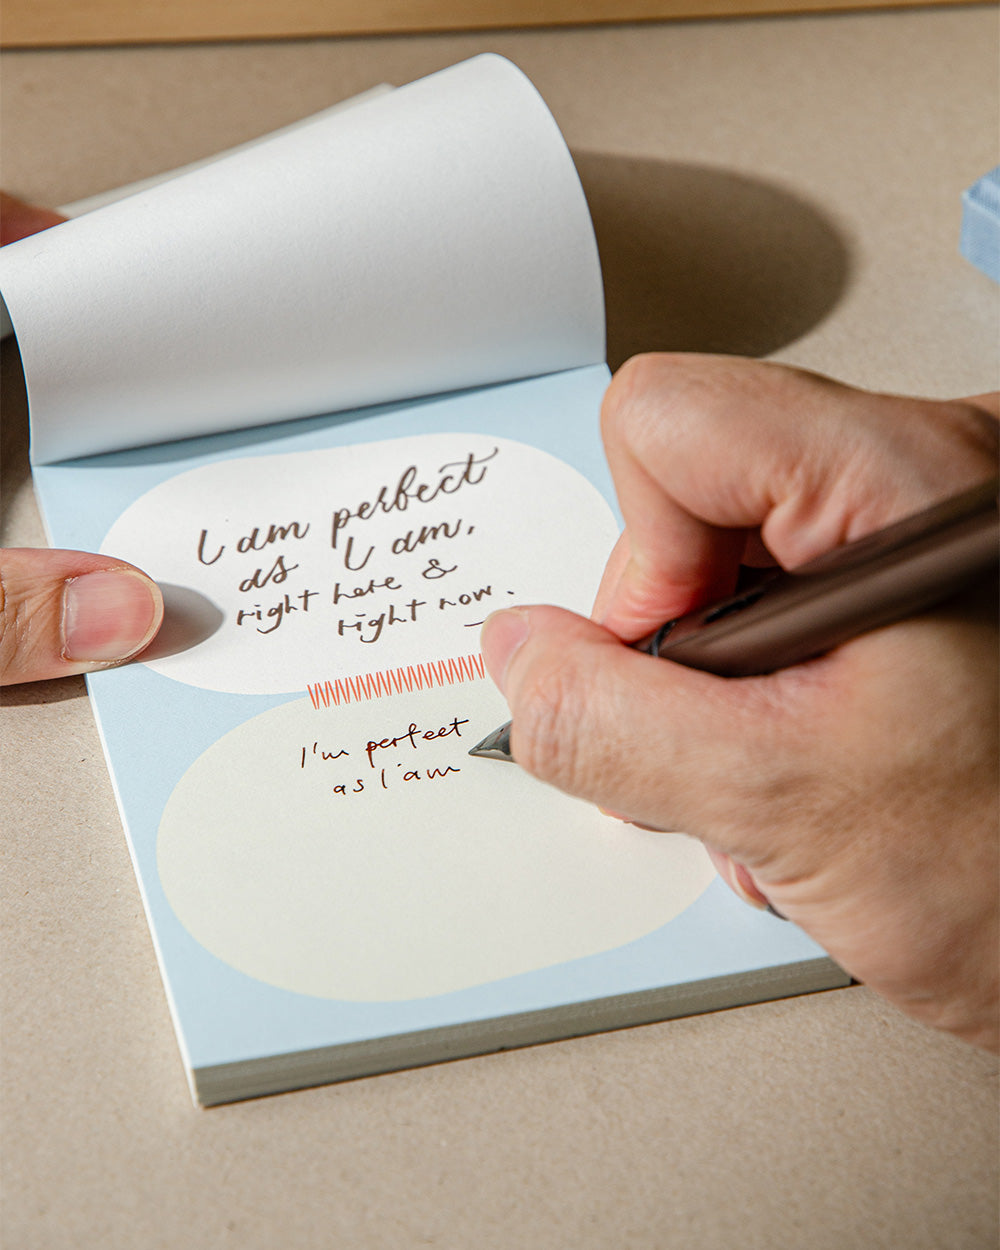 I am perfect
as I am,
right here &
right now.
I'm perfect
as I am